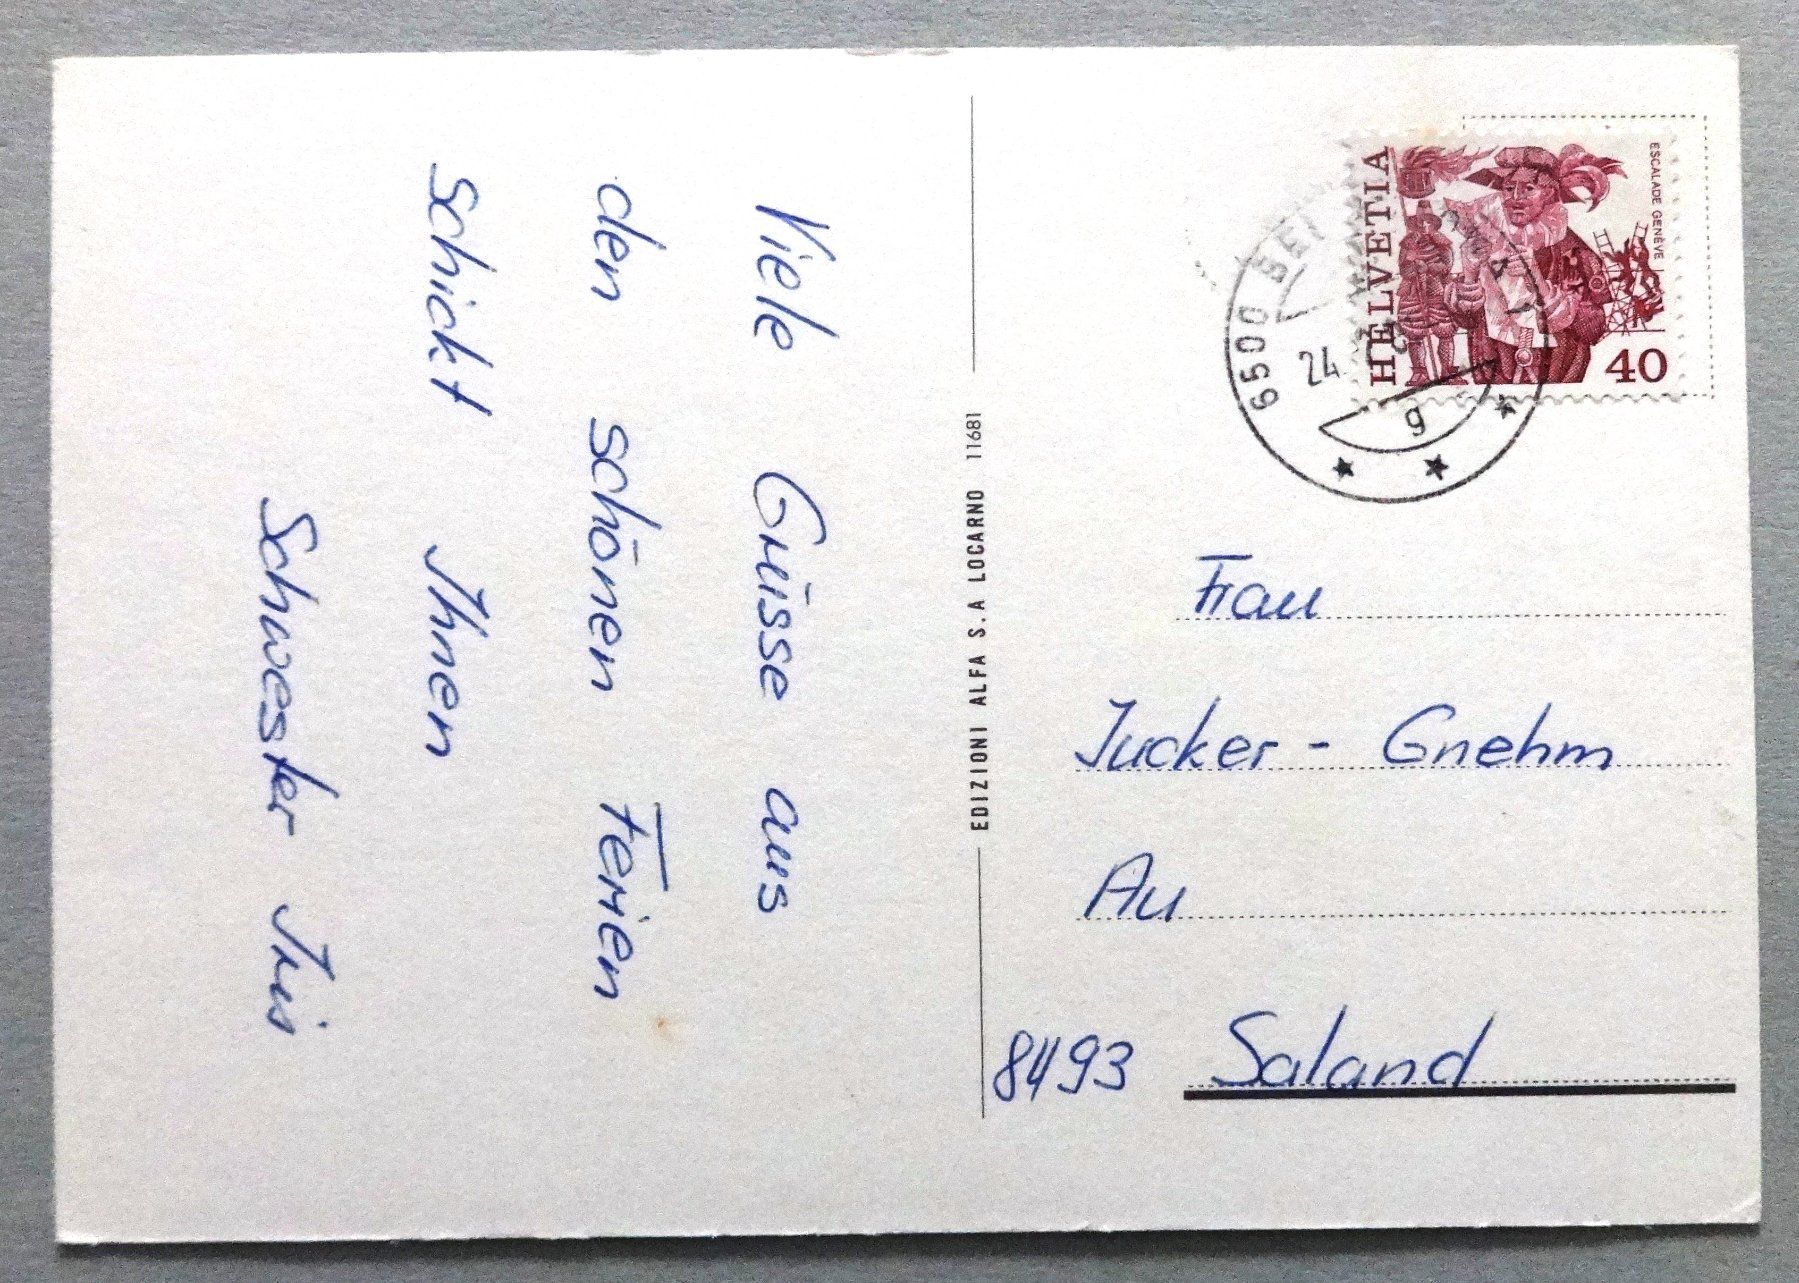 Viele Grüsse aus
den schönen Ferien
schickt Ihnen
Schwester Iris
EDIZIONI ALFA S.A LOCARNO 11681
HELVETIA
ESCALADE GENÈVE
40
6500 BEL
24
g
Frau
Jucker - Gnehm
Au
8493 Saland